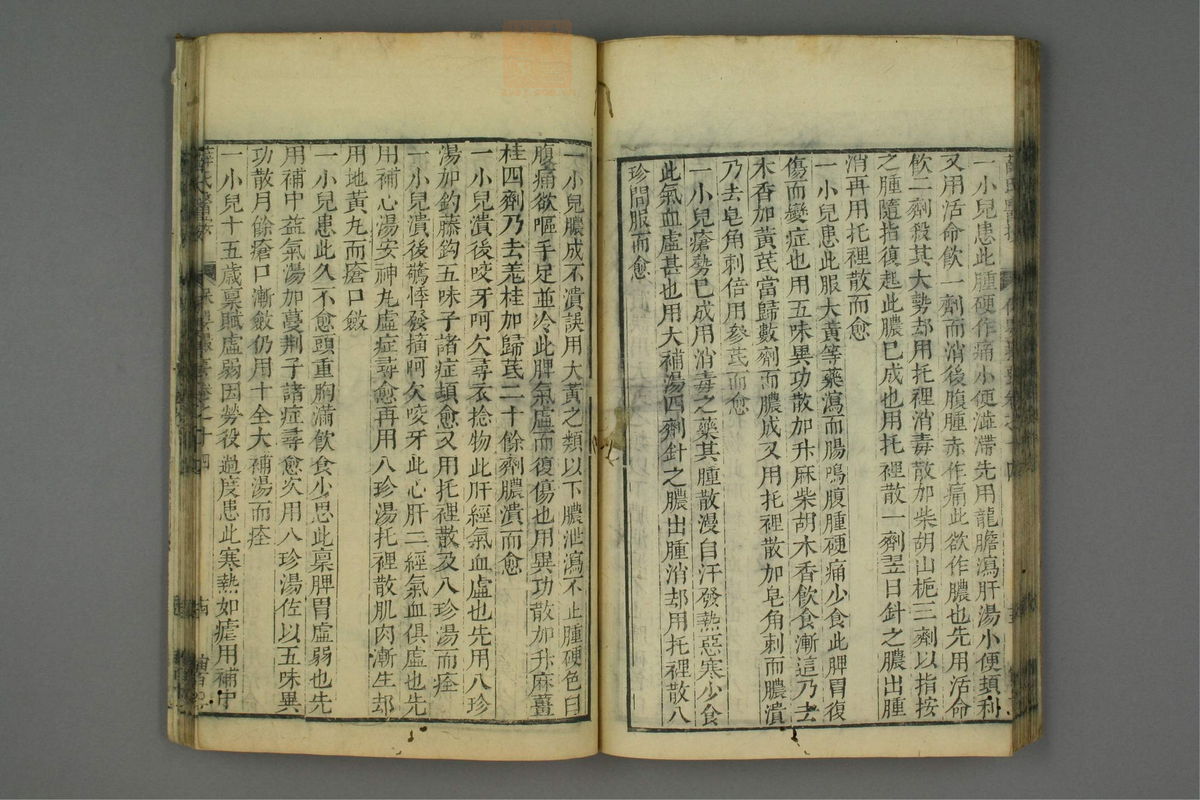 一小兒患此腫硬作痛小便澁滯先用龍膽瀉肝湯小便頓利
又用活命飲一劑而消後腹腫赤作痛此欲作膿也先用活命
飲二劑殺其大勢却用托裡消毒散加柴胡山梔三劑以指按
之腫隨指復起此膿已成也用托裡散一劑翌日針之膿出腫
消再用托裡散而愈
一小兒患此服大黃等藥瀉而腸鳴腹腫硬痛少食此脾胃復
傷而變症也用五味異功散加升麻柴胡木香飲食漸進乃去
木香加黃芪當歸數劑而膿成又用托裡散加皂角刺而膿潰
乃去皂角刺倍用參芪而愈
一小兒瘡勢已成用消毒之藥其腫散漫自汗發熱惡寒少食
此氣血虛甚也用大補湯四劑針之膿出腫消却用托裡散八
珍間服而愈
一小兒膿成不潰誤用大黃之類以下膿泄瀉不止腫硬色白
腹痛欲嘔手足並冷此脾氣虛而復傷也用異功散加升麻薑
桂四劑乃去羌桂加歸芪二十餘劑膿潰而愈
一小兒潰後咬牙呵欠尋衣捻物此肝經氣血虛也先用八珍
湯加釣藤鈎五味子諸症頓愈又用托裡散及八珍湯而痊
一小兒潰後驚悸發搐呵欠咬牙此心肝二經氣血俱虛也先
用補心湯安神丸虛症尋愈再用八珍湯托裡散肌肉漸生却
用地黃丸而瘡口斂
一小兒患此久不愈頭重胸滿飲食少思此稟脾胃虛弱也先
用補中益氣湯加蔓荆子諸症尋愈次用八珍湯佐以五味異
功散月餘瘡口漸斂仍用十全大補湯而痊
一小兒十五歲稟賦虛弱因勞役過度患此寒熱如瘧用補中